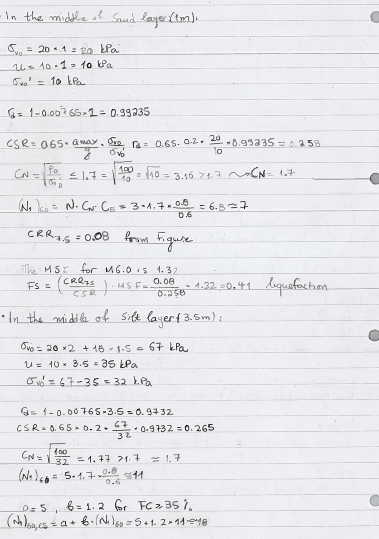 • In the middle of Sand layer (1m):
σvo = 20 * 1 = 20 kPa
u = 10 * 1 = 10 kPa
σvo' = 10 kPa
rd = 1 - 0.00765 × 1 = 0.99235
CSR = 0.65 · amax/g · σvo/σvo' · rd = 0.65 · 0.2 · 20/10 · 0.99235 = 0.258
CN = √(Pa/σvo') ≤ 1.7 = √(100/10) = √10 = 3.16 > 1.7 ⤳ CN = 1.7
(N1)60 = N · CN · CE = 3 * 1.7 * 0.8/0.6 = 6.8 ≃ 7
CRR7.5 = 0.08 from Figure
The MSF for M6.0 is 1.32
FS = (CRR7.5/CSR) · MSF = 0.08/0.258 * 1.32 = 0.41 liquefaction
• In the middle of Silt layer (3.5m):
σvo = 20 × 2 + 18 * 1.5 = 67 kPa
u = 10 × 3.5 = 35 kPa
σvo' = 67 - 35 = 32 kPa
rd = 1 - 0.00765 * 3.5 = 0.9732
CSR = 0.65 × 0.2 * 67/32 * 0.9732 = 0.265
CN = √(100/32) = 1.77 > 1.7 ≃ 1.7
(N1)60 = 5 · 1.7 · 0.8/0.6 ≃ 11
a = 5, b = 1.2 for FC ≥ 35 %
(N1)60,cs = a + b · (N1)60 = 5 + 1.2 * 11 ≃ 18